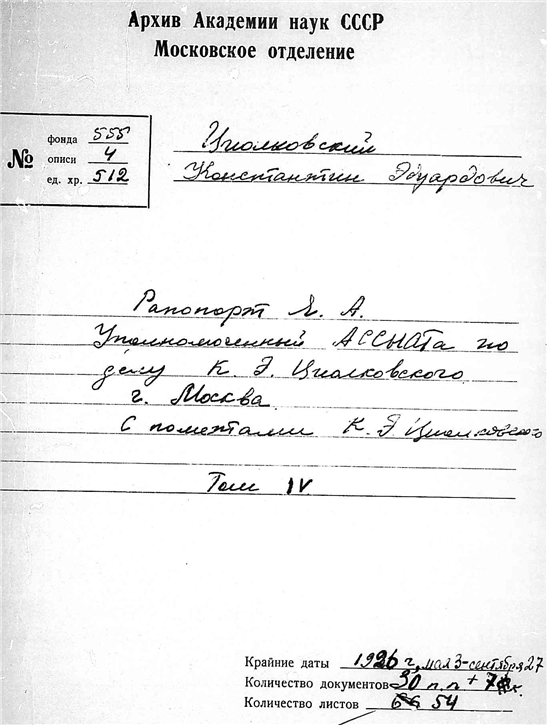 Архив Академии наук СССР
Московское отделение
№
фонда 555
описи 4
ед. хр. 512
Циолковский
Константин Эдуардович
Рапопорт Я. А.
Уполномоченный АССНАТа по
делу К. Э. Циолковского
г. Москва
С пометами К. Э. Циолковского
Том IV
Крайние даты 1926 г, мая 3-сентября 27
Количество документов 30 п.п +
Количество листов 54